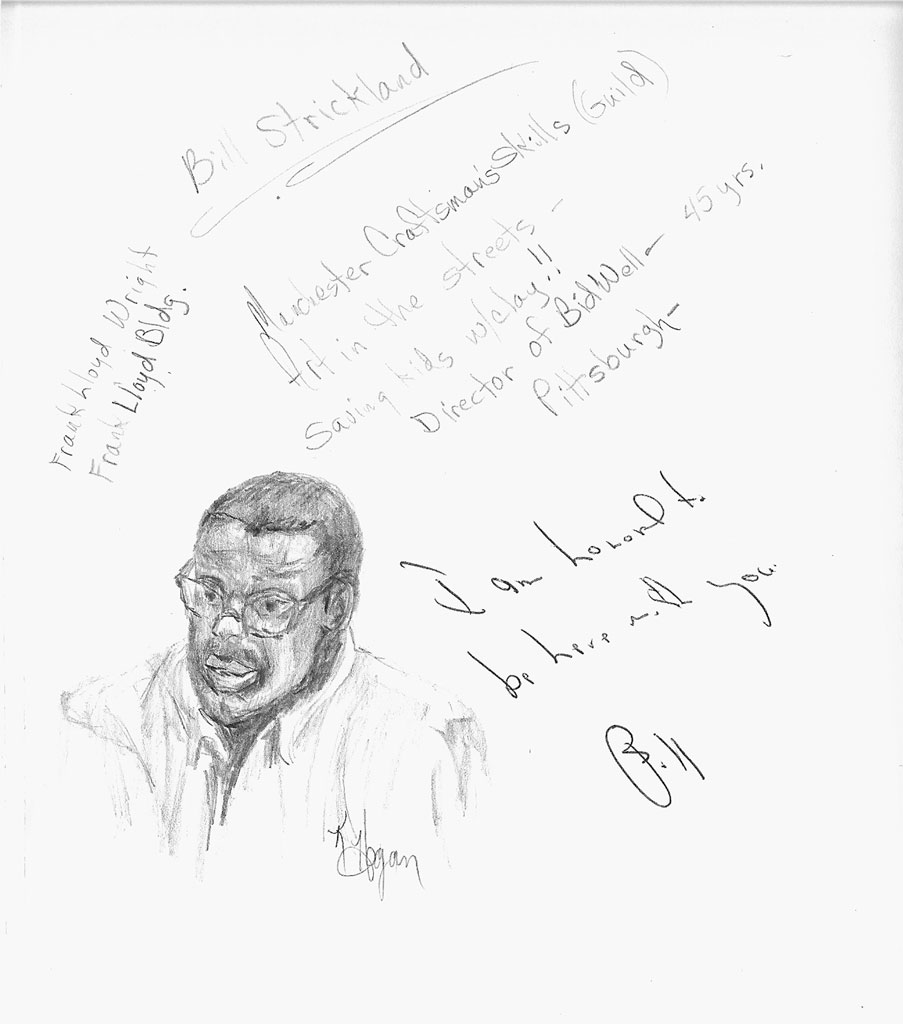 Bill Strickland
Manchester Craftsman's Skills (Guild)
Art in the streets -
Saving kids w/clay!!
Director of BidWell - 45 yrs.
Pittsburgh -
Frank Lloyd Wright
Frank Lloyd Bldg.
I am honored to
be here with you.
Bill
K Hogan